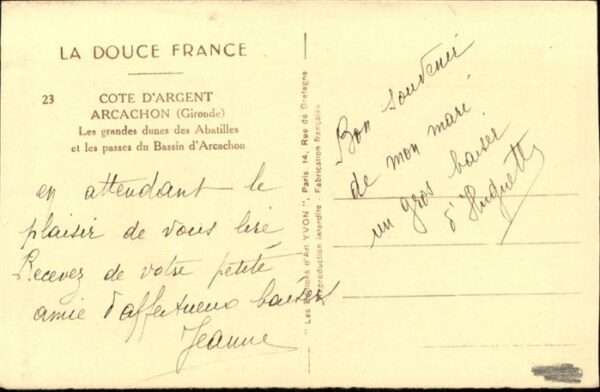 LA DOUCE FRANCE
23 COTE D'ARGENT
ARCACHON (Gironde)
Les grandes dunes des Abatilles
et les passes du Bassin d'Arcachon
en attendant le
plaisir de vous lire
Recevez de votre petite
amie d'affectueux baisers
Jeanne
"Les Editions d'Art YVON", Paris, 14, Rue de Bretagne
Reproduction interdite Fabrication française
Bon souvenir
de mon mari
un gros baiser
d'Huguette